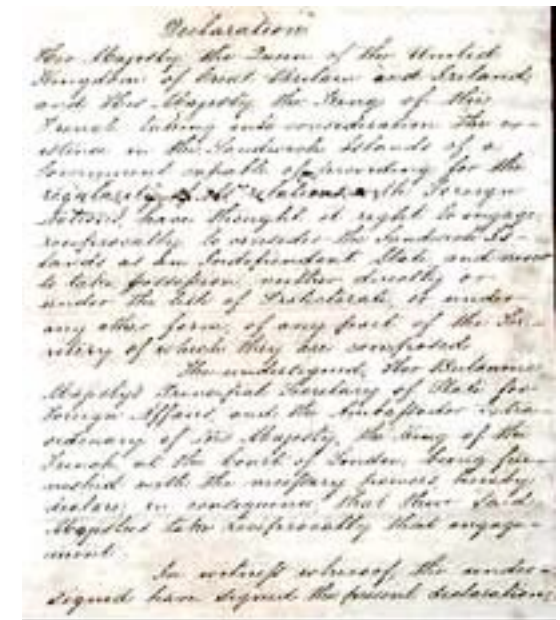 Declaration
Her Majesty the Queen of the United
Kingdom of Great Britain and Ireland,
and His Majesty the King of the
French taking into consideration the ex-
istence in the Sandwich Islands of a
Government capable of providing for the
regularity of its relations with Foreign
Nations, have thought it right to engage
reciprocally to consider the Sandwich Is-
lands as an Independent State and never
to take possession, neither directly or
under the title of Protectorate, or under
any other form, of any part of the Ter-
ritory of which they are composed.
The undersigned, Her Britannic
Majesty's Principal Secretary of State for
Foreign Affairs, and the Ambassador Extra-
ordinary of His Majesty, the King of the
French at the Court of London, being fur-
nished with the necessary powers, hereby
declare, in consequence, that their Said
Majesties take reciprocally that engage-
ment.
In witness whereof, the under-
signed have signed the present declaration,